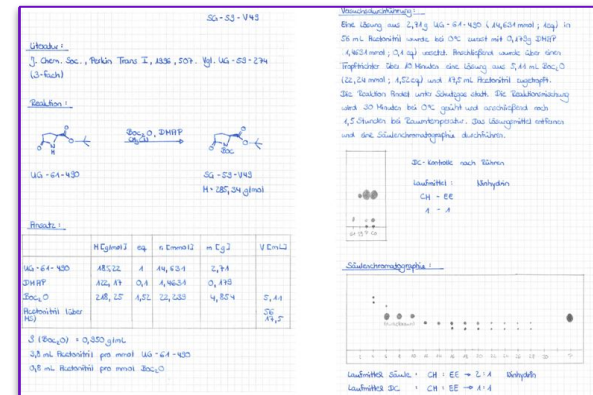 SG-S9-V49
Literatur:
J. Chem. Soc., Perkin Trans I, 1996, 507. Vgl. UG-S9-274
(3-fach)
Reaktion:
Boc₂O, DMAP
CH₃CN
UG-61-490
SG-S9-V49
M = 285,34 g/mol
Boc
Ansatz:
M [g/mol] eq n [mmol] m [g] V [mL]
UG-61-490 185,22 1 14,631 2,71
DMAP 122,17 0,1 1,4631 0,179
Boc₂O 218,25 1,52 22,239 4,854 5,11
Acetonitril (über MS) 56 17,5
ϱ (Boc₂O) = 0,950 g/mL
3,8 mL Acetonitril pro mmol UG-61-490
0,8 mL Acetonitril pro mmol Boc₂O
Versuchsdurchführung:
Eine Lösung aus 2,71 g UG-61-490 (14,631 mmol; 1eq) in
56 mL Acetonitril wurde bei 0°C zuerst mit 0,179g DMAP
1,4631 mmol; 0,1 eq) versetzt. Anschließend wurde über einen
Tropftrichter über 10 Minuten eine Lösung aus 5,11 mL Boc₂O
(22,24 mmol; 1,52eq) und 17,5 mL Acetonitril zugetropft.
Die Reaktion findet unter Schutzgas statt. Die Reaktionsmischung
wird 30 Minuten bei 0°C gerührt und anschließend noch
1,5 Stunden bei Raumtemperatur. Das Lösungsmittel entfernen
und eine Säulenchromatographie durchführen.
DC-Kontrolle nach Rühren
Laufmittel: Ninhydrin
CH - EE
1 - 1
Säulenchromatographie:
Laufmittel Säule: CH : EE → 2:1 Ninhydrin
Laufmittel DC: CH : EE → 1:1